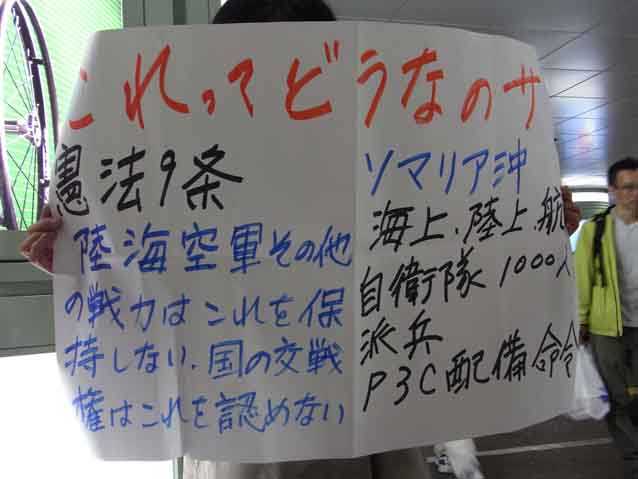 これってどうなのサ
憲法9条
陸海空軍その他
の戦力はこれを保
持しない、国の交戦
権はこれを認めない
ソマリア沖
海上、陸上、航
自衛隊1000人
派兵
P3C配備命令